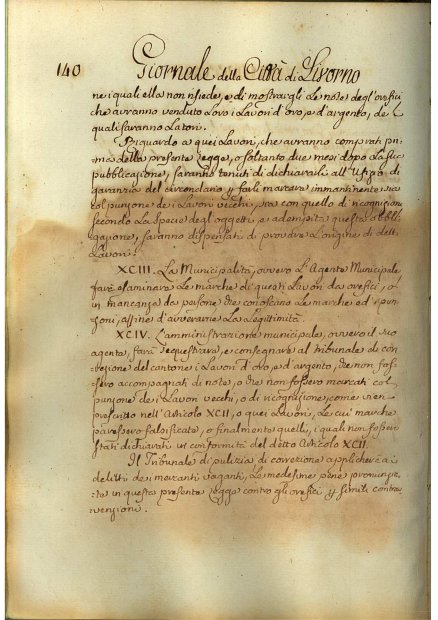 140 Giornale della Città di Livorno
ne i quali ella non risiede, e di mostrargli le note degl'orefici
che avranno venduto loro i Lavori d'oro, e d'argento, de'
quali saranno Latori.
Riguardo a quei Lavori, che avranno comprati pri-
ma della presente legge, o soltanto due mesi dopo la sua
pubblicazione, saranno tenuti di dichiararli all'Ufizio di
garanzia del circondario p farli marcare immantinente sia
col punzone de i Lavori vecchi, sia con quello di ricognizione
secondo la specie degl'oggetti, e adempita questa obbli-
gazione, saranno dispensati di provare l'origine di detti
Lavori.
XCIII. La Municipalità, ovvero l'Agente Municipale
farà esaminare le marche di questi Lavori da orefici, o
in mancanza da persone che conoscino le marche ed i pun-
zoni, affine d'avverarne la legittimità.
XCIV. L'amministrazione municipale, ovvero il suo
agente, farà sequestrare, e consegnare al tribunale di cor-
rezione del cantone i Lavori d'oro, e d'argento, che non fos-
sero accompagnati di note, o che non fossero marcati col
punzone de i Lavori vecchi, o di ricognizione, come vien
prescritto nell'Articolo XCII, o quei Lavori, le cui marche
paressero falsificate, o finalmente quelli, i quali non fosser
stati dichiarati in conformità del detto Articolo XCII.
Il Tribunale di pulizia di correzione applicherà a i
delitti de i mercanti vaganti, le medesime pene pronunzia-
te in questa presente legge contro gli orefici p simili contra-
venzioni.